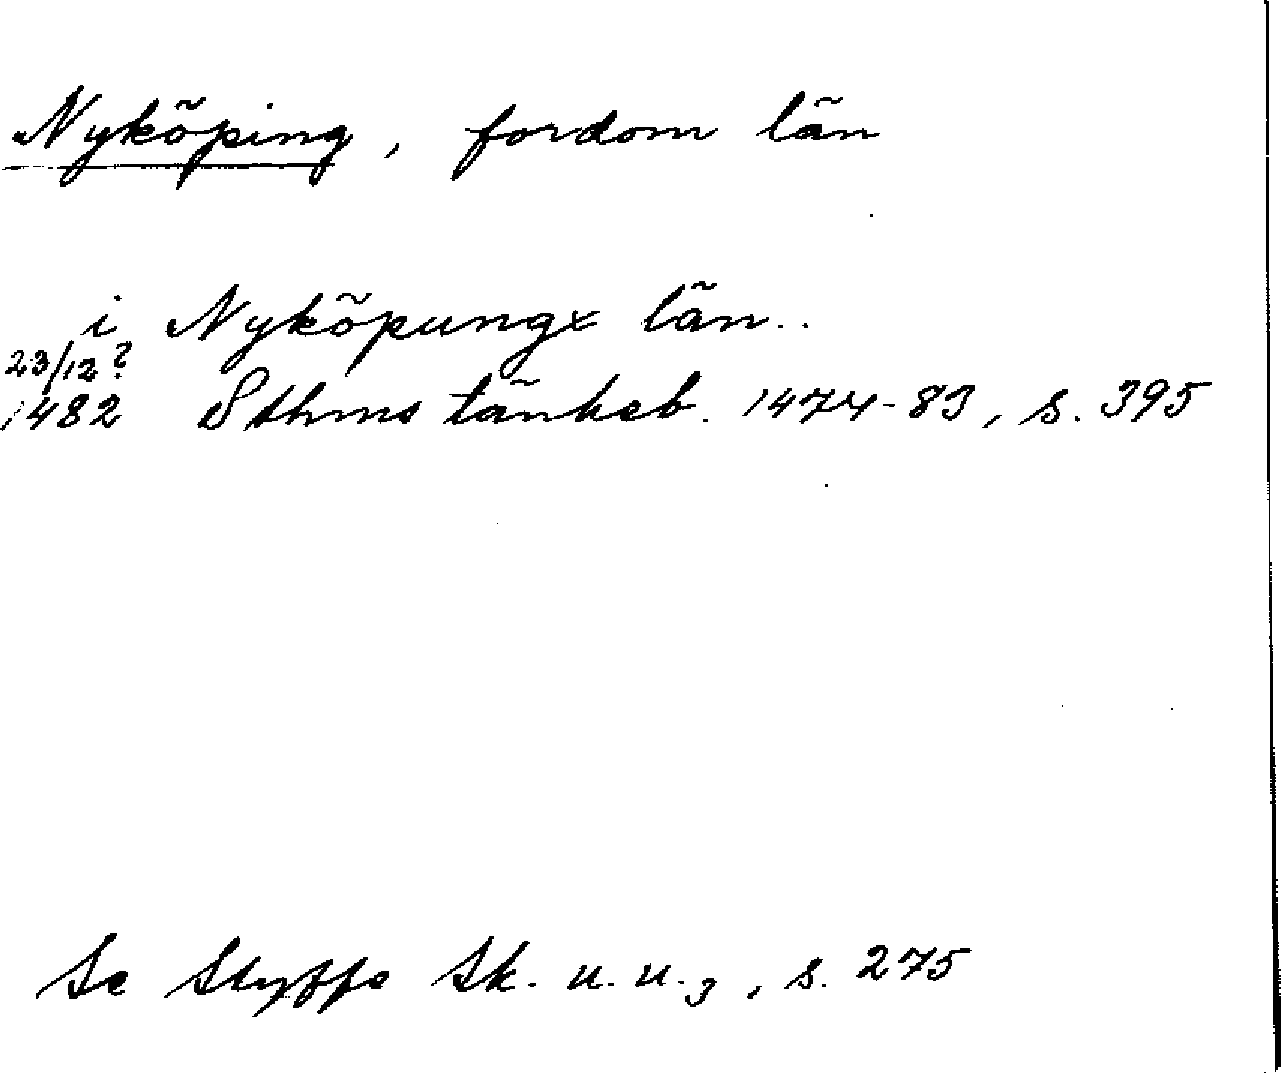 Nyköping, fordom län
i Nyköpungx län..
23/12?
1482 Sthms tänkeb. 1474-83, s. 395
Se Styffe Sk. u. u.3, s. 275